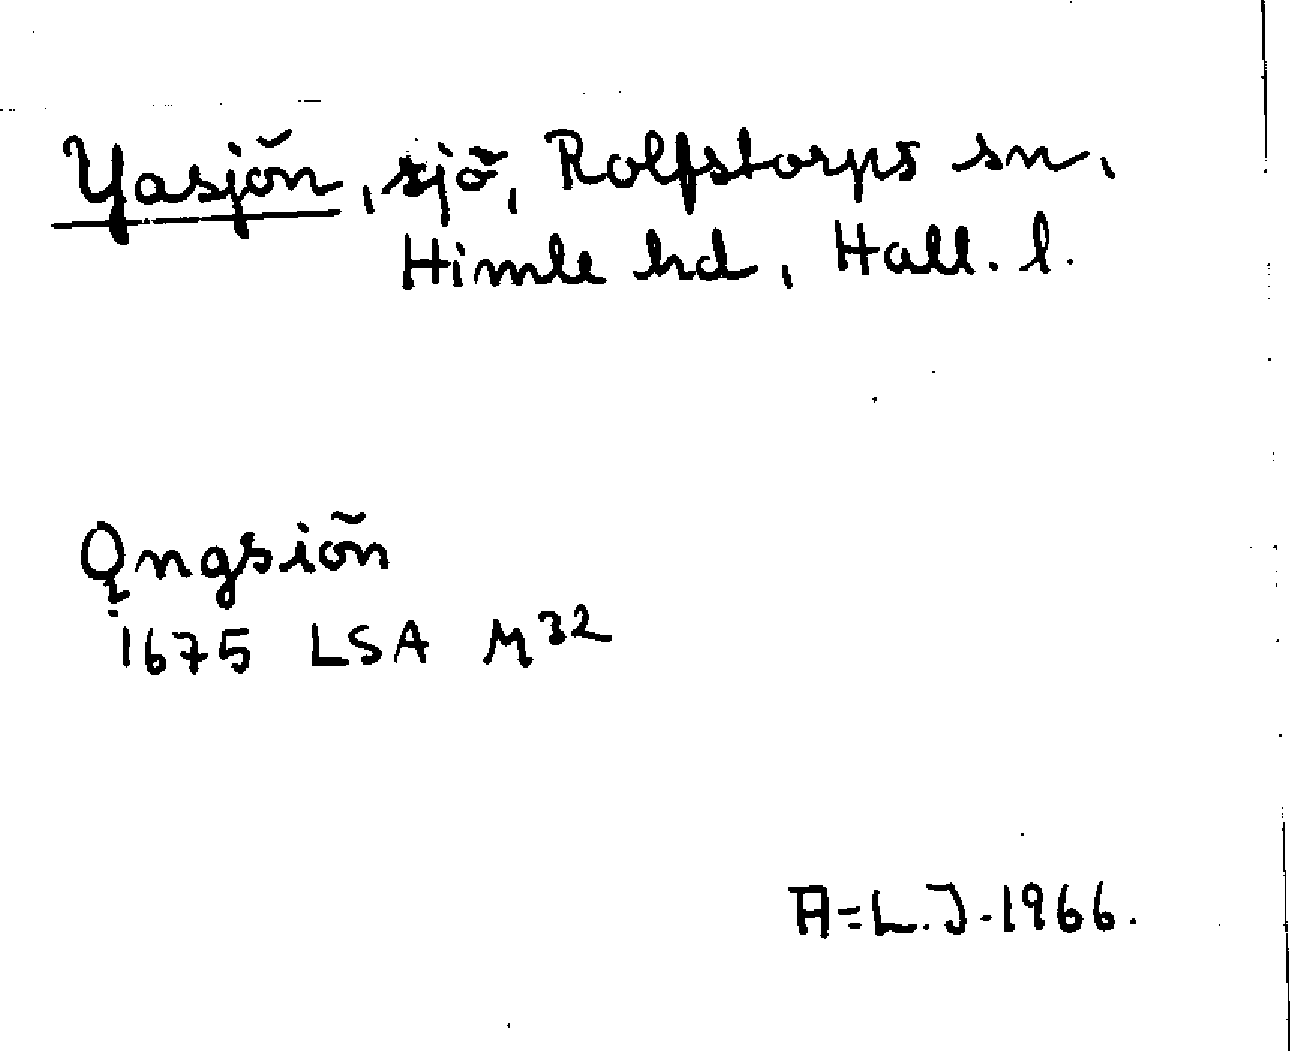 Yasjön, sjö, Rolfstorps sn,
Himle hd, Hall. l.
Qngsiön
1675 LSA M32
A=L.J.1966.